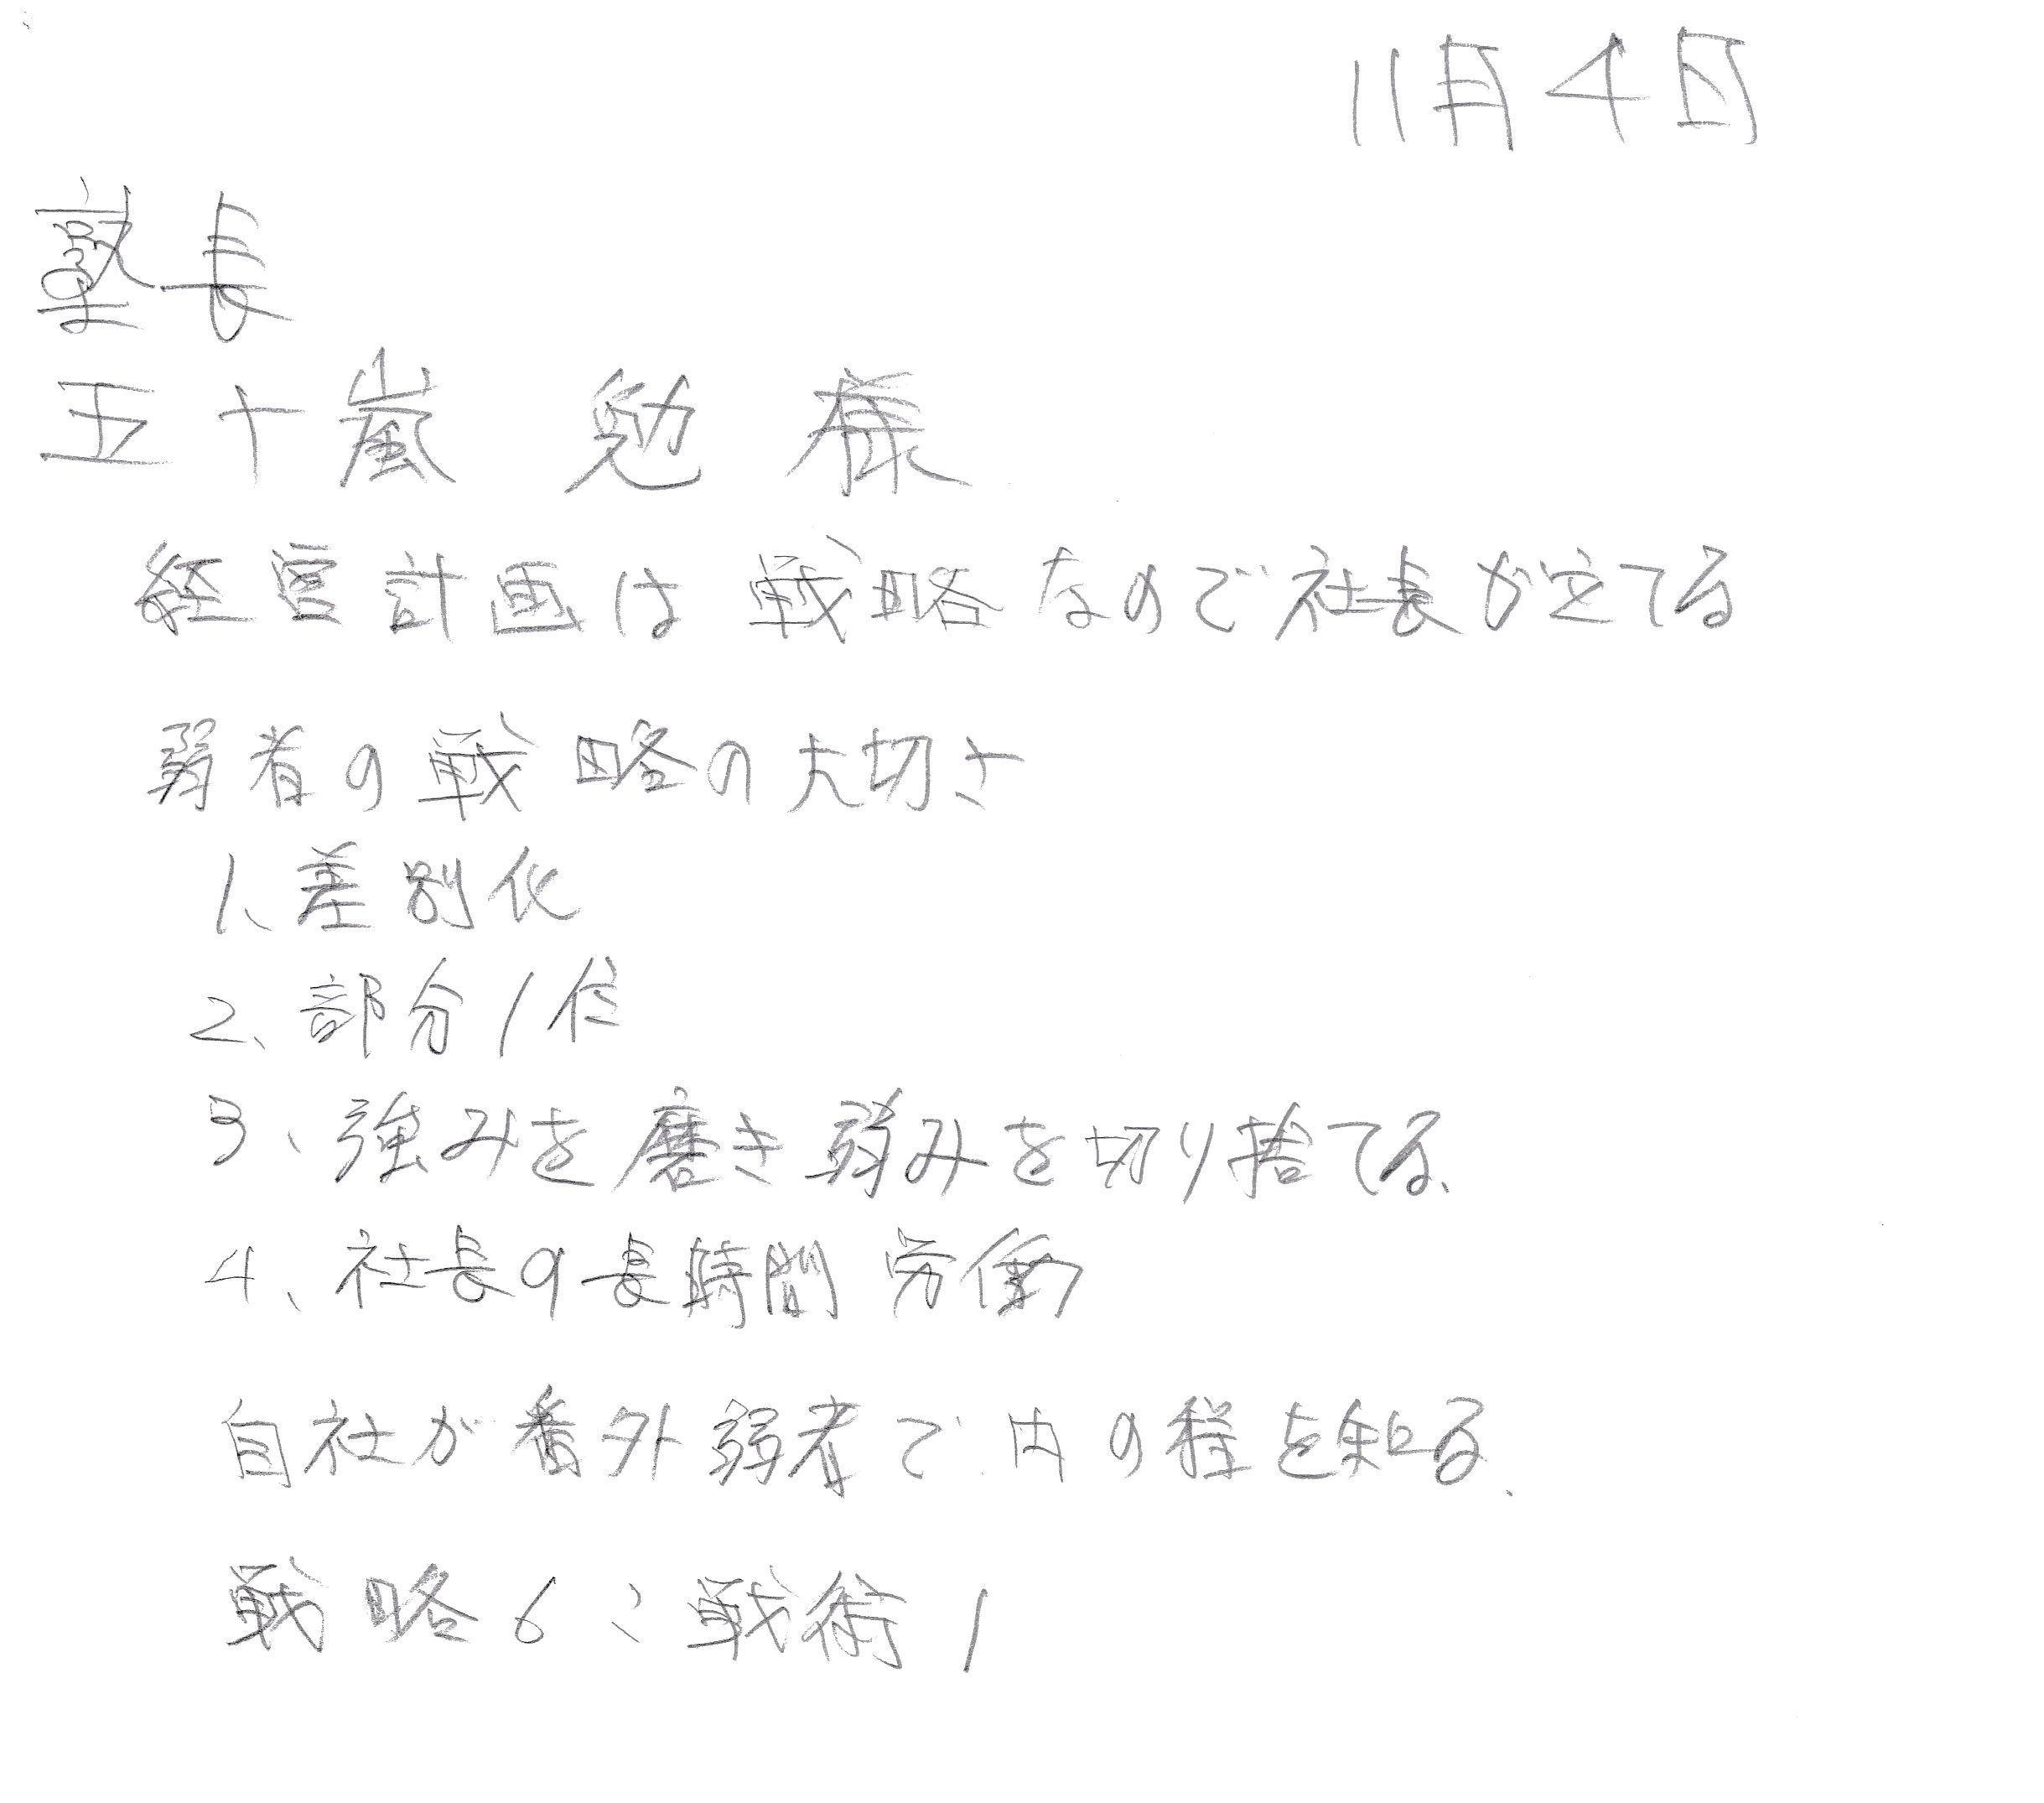 11月4日
塾長
五十嵐 勉 様
経営計画は戦略なので社長が立てる
弱者の戦略の大切さ
1、差別化
2、部分1位
3、強みを磨き弱みを切り捨てる、
4、社長の長時間労働
自社が番外弱者で身の程を知る、
戦略6:戦術1